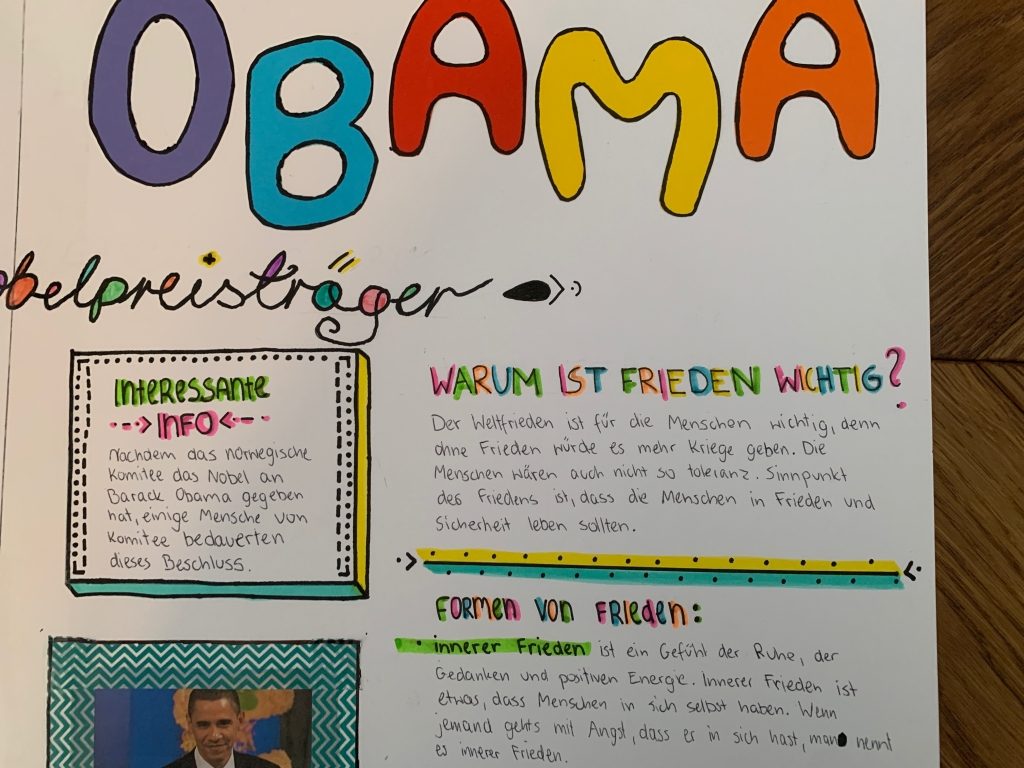 OBAMA
obelpreisträger
INTERESSANTE
INFO
Nachdem das norwegische
Komitee das Nobel an
Barack Obama gegeben
hat, einige Mensche von
Komitee bedauerten
dieses Beschluss.
WARUM IST FRIEDEN WICHTIG?
Der Weltfrieden ist für die Menschen wichtig, denn
ohne Frieden würde es mehr Kriege geben. Die
Menschen wären auch nicht so toleranz. Sinnpunkt
des Friedens ist, dass die Menschen in Frieden und
Sicherheit leben sollten.
FORMEN VON FRIEDEN:
• innerer Frieden ist ein Gefühl der Ruhe, der
Gedanken und positiven Energie. Innerer Frieden ist
etwas, dass Menschen in sich selbst haben. Wenn
jemand gehts mit Angst, dass er in sich hast, man nennt
es innerer Frieden.